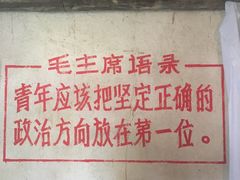 毛主席语录
青年应该把坚定正确的
政治方向放在第一位。